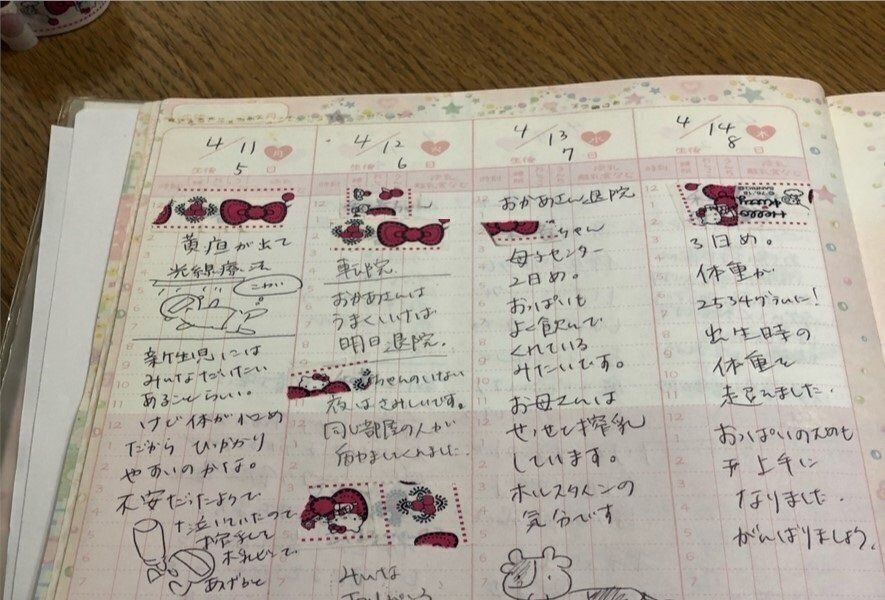 4/11 月
生後 5 日
黄疸が出て
光線療法
こわい
新生児には
みんなだいたい
あることらしい。
けど体が
だから ひっかかり
やすいのかな。
不安だったようで
泣いていたので
あげると
4/12 火
生後 6 日
転院
おかあさんは
うまくいけば
明日退院。
ちゃんのいない
夜はさみしいです。
同じ部屋の人が
くれました。
みんな
4/13 水
生後 7 日
おかあさん退院
ちゃん
母子センター
2日め。
おっぱいも
よく飲んで
くれている
みたいです。
お母さんは
せっせと搾乳
しています。
ホルスタインの
気分です
4/14 木
生後 8 日
Hello Kitty
3日め。
体重が
2534グラムに!
出生時の
体重を
超えました。
おっぱいのみも
上手に
なりました。
がんばりましょう。